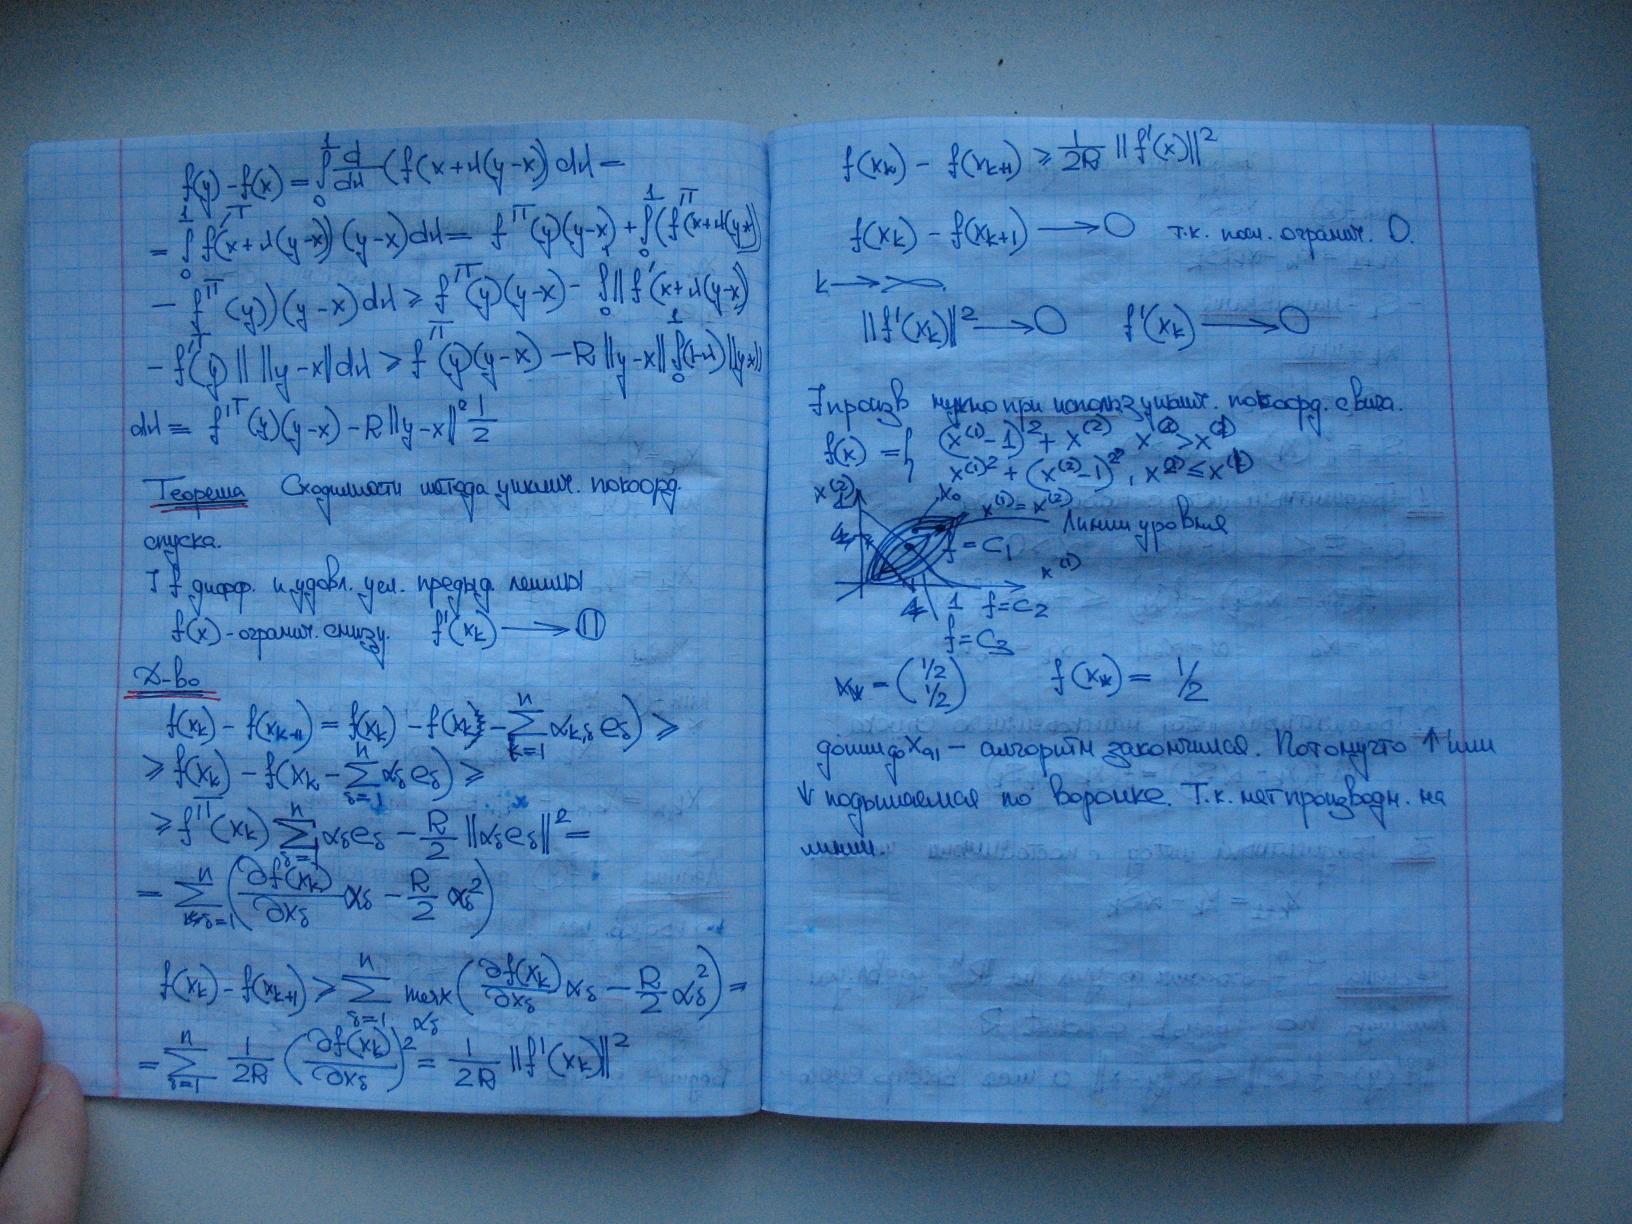 f(y) - f(x) = ∫₀¹ d/dλ (f(x+λ(y-x)) dλ =
= ∫₀¹ f'ᵀ(x+λ(y-x)) (y-x) dλ = f'ᵀ(y)(y-x) + ∫₀¹ (f'ᵀ(x+λ(y-x))
- f'ᵀ(y))(y-x) dλ ≥ f'ᵀ(y)(y-x) - ∫₀¹ ||f'(x+λ(y-x))
- f'(y)|| ||y-x|| dλ ≥ f'ᵀ(y)(y-x) - R||y-x|| ∫₀¹ (1-λ)||y-x||
dλ = f'ᵀ(y)(y-x) - R||y-x||² 1/2
Теорема Сходимости метода циклич. покоорд.
спуска.
] f дифф. и удовл. усл. предыд. леммы
f(x) - огранич. снизу. f'(x_k) → 0
Д-во
f(x_k) - f(x_{k+1}) = f(x_k) - f(x_k - Σ_{k=1}^n α_{k,s} e_s) ≥
≥ f(x_k) - f(x_k - Σ_{s=1}^n α_s e_s) ≥
≥ f'ᵀ(x_k) Σ_{s=1}^n α_s e_s - R/2 ||α_s e_s||² =
= Σ_{s=1}^n (∂f(x_k)/∂x_s α_s - R/2 α_s²)
f(x_k) - f(x_{k+1}) ≥ Σ_{s=1}^n max_{α_s} (∂f(x_k)/∂x_s α_s - R/2 α_s²) =
= Σ_{s=1}^n 1/2R (∂f(x_k)/∂x_s)² = 1/2R ||f'(x_k)||²
f(x_k) - f(x_{k+1}) ≥ 1/2R ||f'(x)||²
f(x_k) - f(x_{k+1}) → 0 т.к. посл. огранич. 0.
k → ∞
||f'(x_k)||² → 0 f'(x_k) → 0
] произв нужно при использ циклич. покоорд. свига.
f(x) = { (x⁽¹⁾-1)² + x⁽²⁾ x⁽²⁾ > x⁽¹⁾
x⁽¹⁾² + (x⁽²⁾-1)², x⁽²⁾ ≤ x⁽¹⁾
x⁽²⁾ 1 x₀ x⁽¹⁾ = x⁽²⁾ Линии уровня
f = C₁ x⁽¹⁾
1 f = C₂
f = C₃
x_* = (1/2 1/2) f(x_*) = 1/2
дошли до - алгоритм закончился. Потому что ↑ или
↓ подымаемся по воронке. Т.к. нет производн. на
линии.